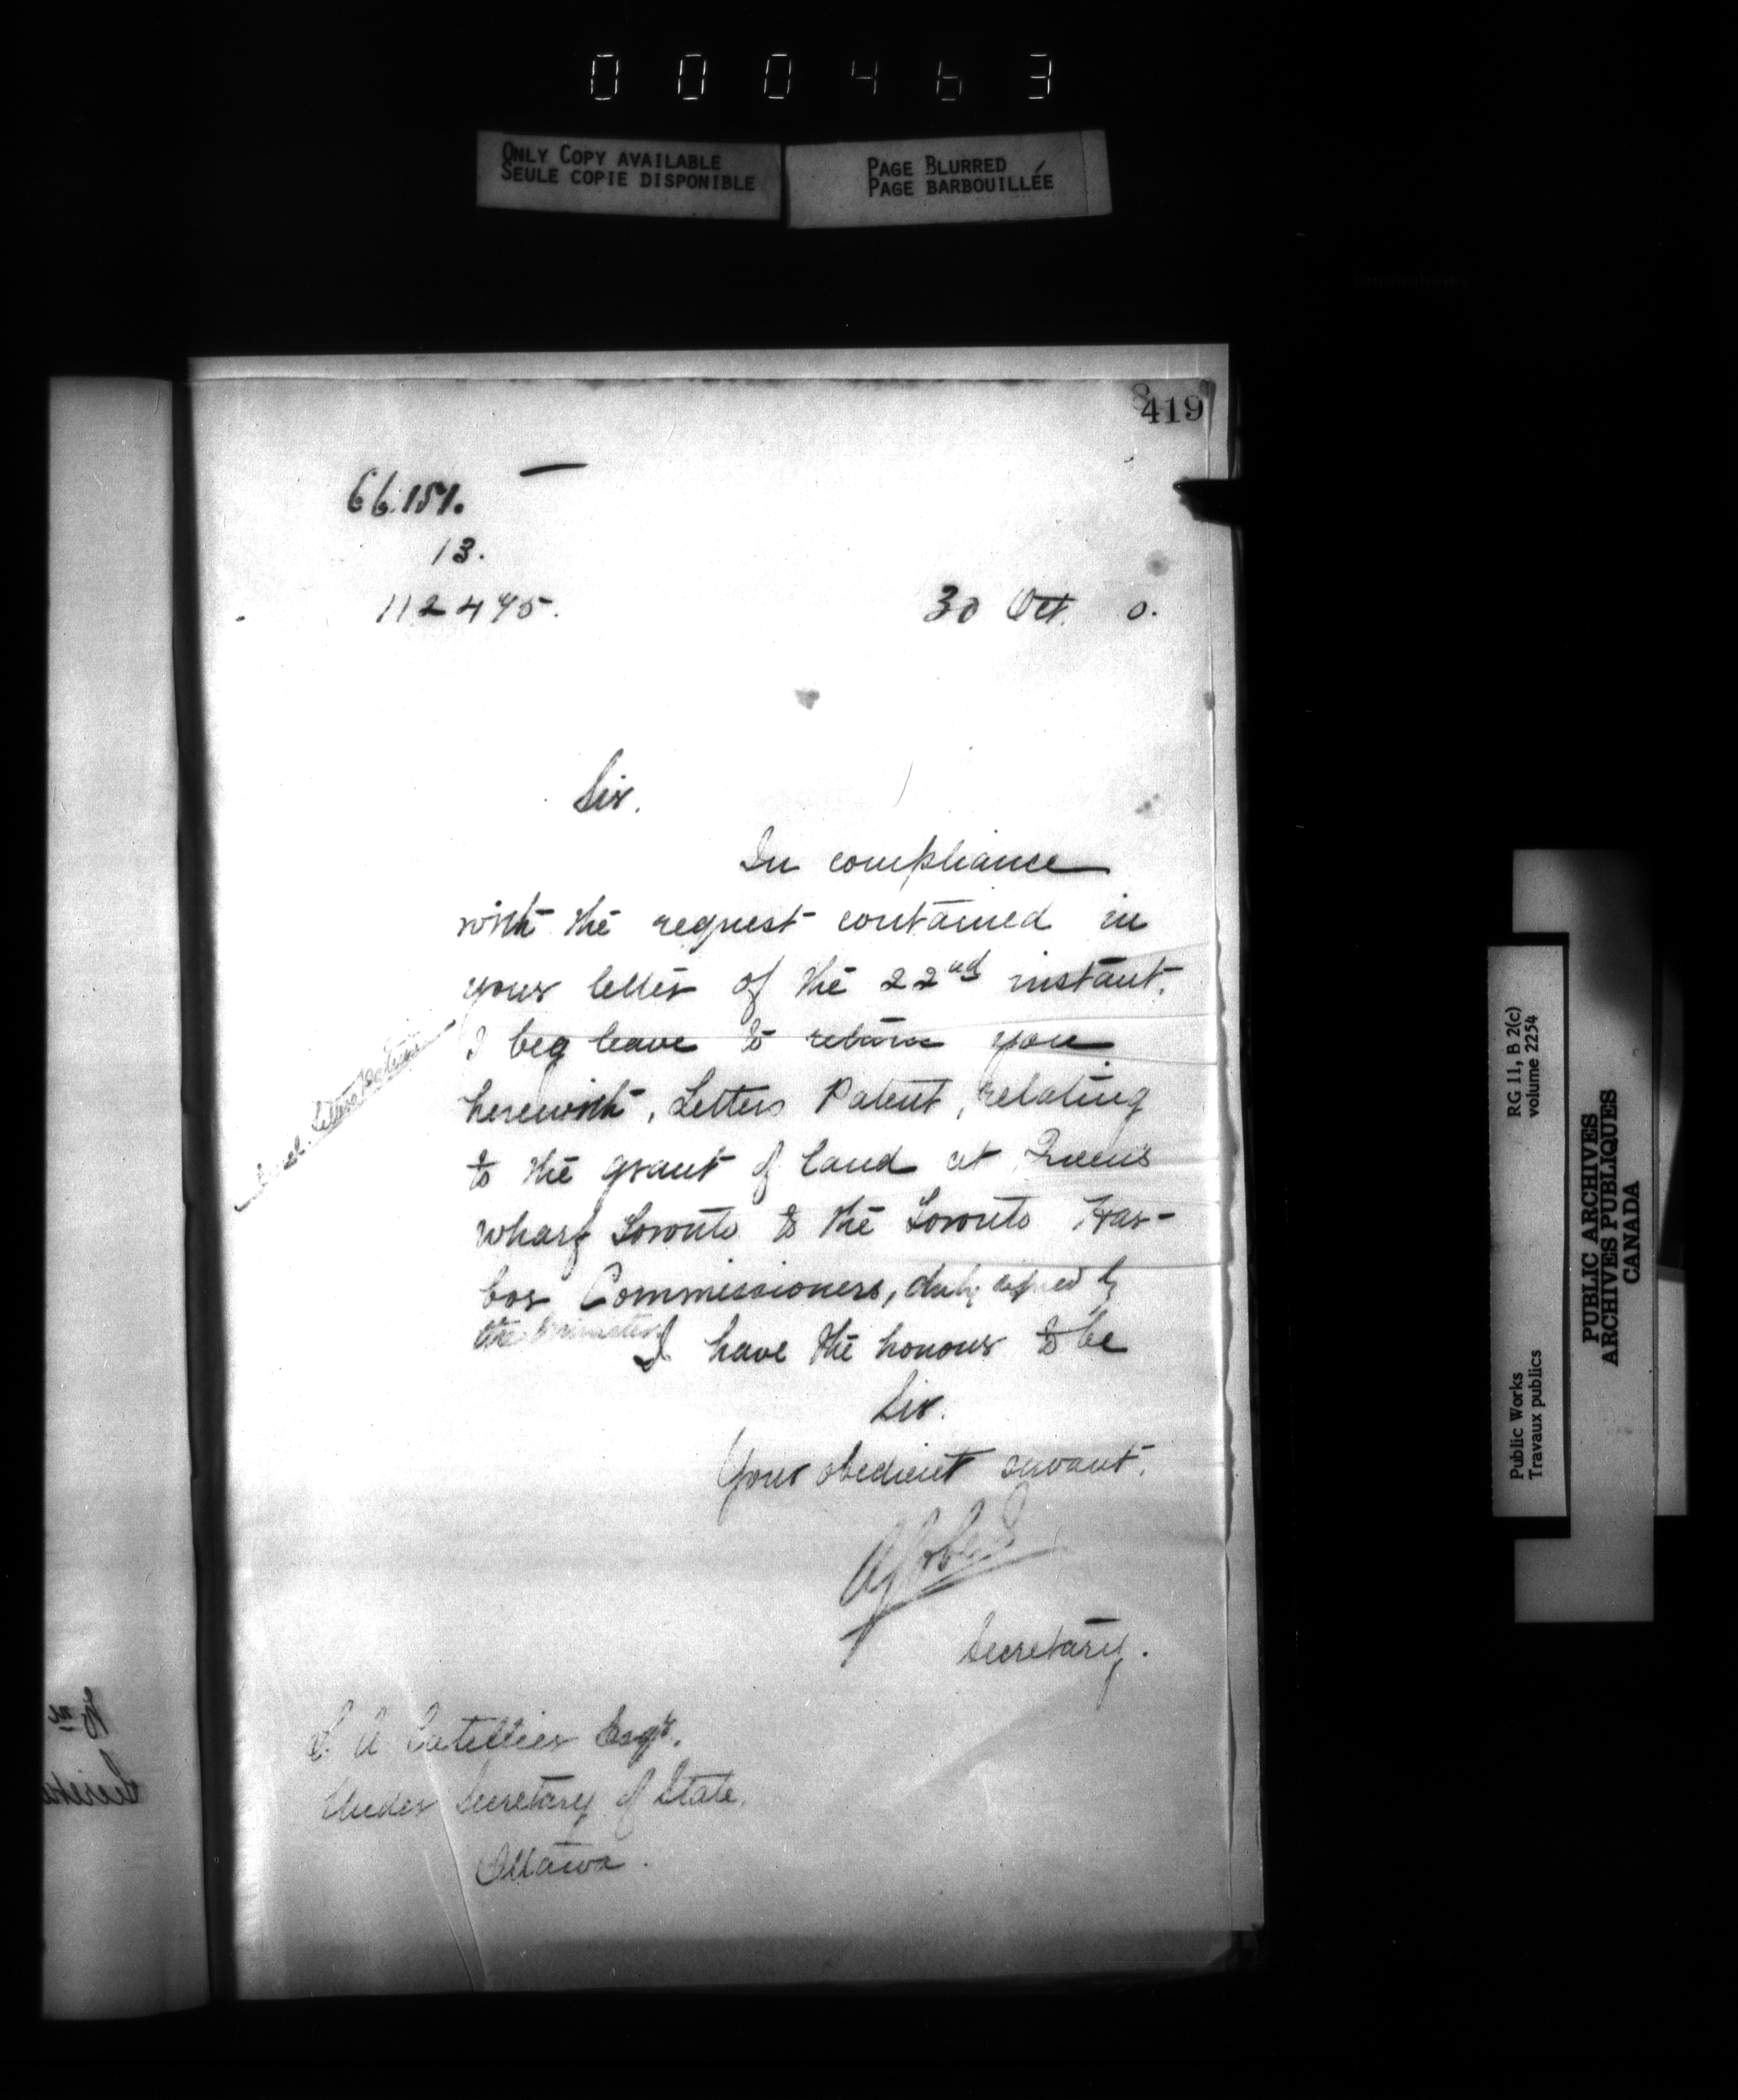 000463
ONLY COPY AVAILABLE
SEULE COPIE DISPONIBLE
PAGE BLURRED
PAGE BARBOUILLÉE
419
66.151.
13.
112475.
30 Oct. 0.
Sir.
In compliance
with the request contained in
your letter of the 22nd instant.
I beg leave to return you
herewith, Letters Patent, relating
to the grant of land at Queen's
wharf Toronto to the Toronto Har-
bor Commissioners, duly signed by
the Minister
I have the honour to be
Sir.
Your obedient servant.
Secretary.
L. A. Catellier Esqr.
Under Secretary of State.
Ottawa.
Letters Patent
RG 11, B 2(c)
volume 2254
Public Works
Travaux publics
PUBLIC ARCHIVES
ARCHIVES PUBLIQUES
CANADA